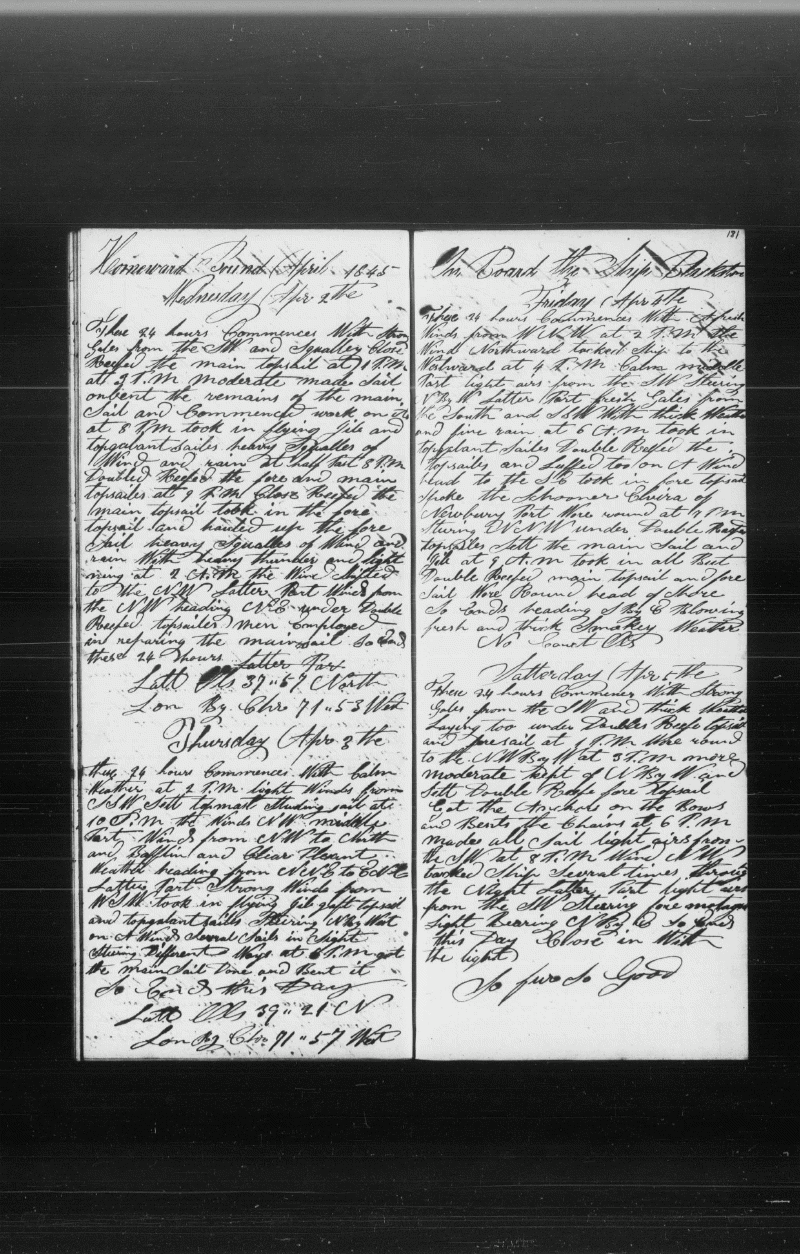 Homeward Bound April 1845
Wednesday Apr 2the
These 24 hours Commences With Stron
Gales from the SW and Squalley Close
Reefed the main topsail at 1 P.M.
at 3 P.M moderate made Sail
onbent the remains of the main
Sail and Commenced work on
at 8 P.M took in flying Jib and
topgalant sailes heavy Squalles of
Wind and rain at half Past 8 P.M
Doubled Reefed the fore and main
topsailes at 9 P.M Close Reefed the
main topsail took in the fore
topsail and hauled up the fore
Sail heavy Squalles of Wind and
rain With heavy thunder and light
ning at 2 A.M the Wind Shifted
to the N.W Latter Part Winds from
the NW heading N.E under Double
Reefed topsailes men Employed
in reparing the mainsail So Ends
these 24 hours Latter Part
Latt Obs 37"57 North
Lon By Chro 71"53 West
Thursday Apr 3the
these 24 hours Commences With Calm
Weather at 2 P.M light Winds from
SSW Sett topmast Studing sail att
10 P.M the Winds NW middle
Part Winds from NW to North
and Bafflin and Clear Plesant
Weather heading from NNE to ENE
Latter Part Strong Winds from
WSW took in flying Jib gaft topsail
and topgalant sailes Stering N By West
on A Wind Several Sails in Sight
Stering Different Ways at 6 P.M got
the main Sail Done and Bent it
So Ends this Day
Latt Obs 39"21 N
Lon By Chro 71"57 West
181
On Board the Ship Blackston
Friday Apr 4the
These 24 hours Commences With A fresh
Winds from WNW at 2 P.M the
Wind Northward tacked Ship to the
Westward at 4 P.M Calm middle
Part light airs from the SW Steering
N By W Latter Part fresh Gales from
the South and SSW With thick Weather
and fine rain at 6 A.M took in
topgalant Sailes Double Reefed the
topsailes and Luffed too on A Wind
head to the SE took in fore topsail
Spoke the Schooner Elvira of
Newbury Port Wore round at 7 PM
Stering WNW under Double Reefed
topsailes Sett the main Sail and
Jib at 9 A.M took in all But
Double Reefed main topsail and fore
Sail Wore Round head of Shore
So Ends heading S By E Blowing
fresh and thick Smokey Weather
No Obs
Satterday Apr 5the
These 24 hours Commences With Strong
Gales from the SW and thick Weather
Laying too under Doubles Reefs topsail
and foresail at 1 P.M Wore round
to the NW By W at 3 P.M more
moderate kept of N By W and
Sett Double Reefe fore Topsail
Got the Anchors on the Bows
and Bent the Chains at 6 P.M
mades all Sail light airs from
the SW at 8 P.M Wind NW
tacked Ship Several times through
the Night Latter Part light airs
from the SW Steering fore
Light Bearing N By E So Ends
this Day Close in With
the light
So fur So Good